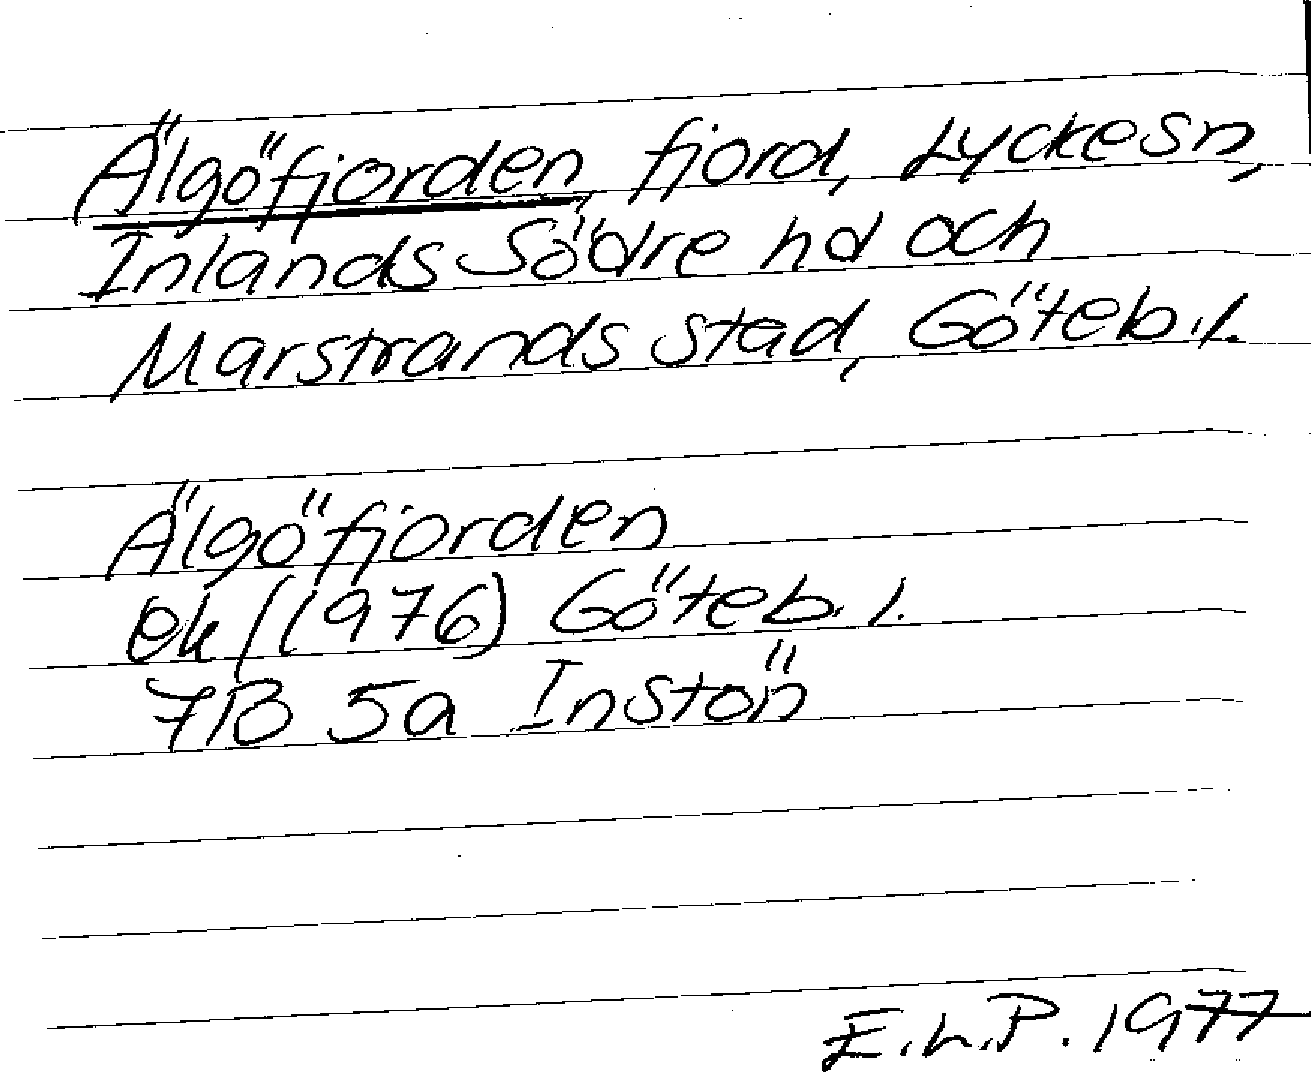 Älgöfjorden, fjord, Lyckesn,
Inlands Södre hd och
Marstrands stad, Göteb. l.
Älgöfjorden
ek (1976) Göteb. l.
7B 5a Instön
E.L.P. 1977